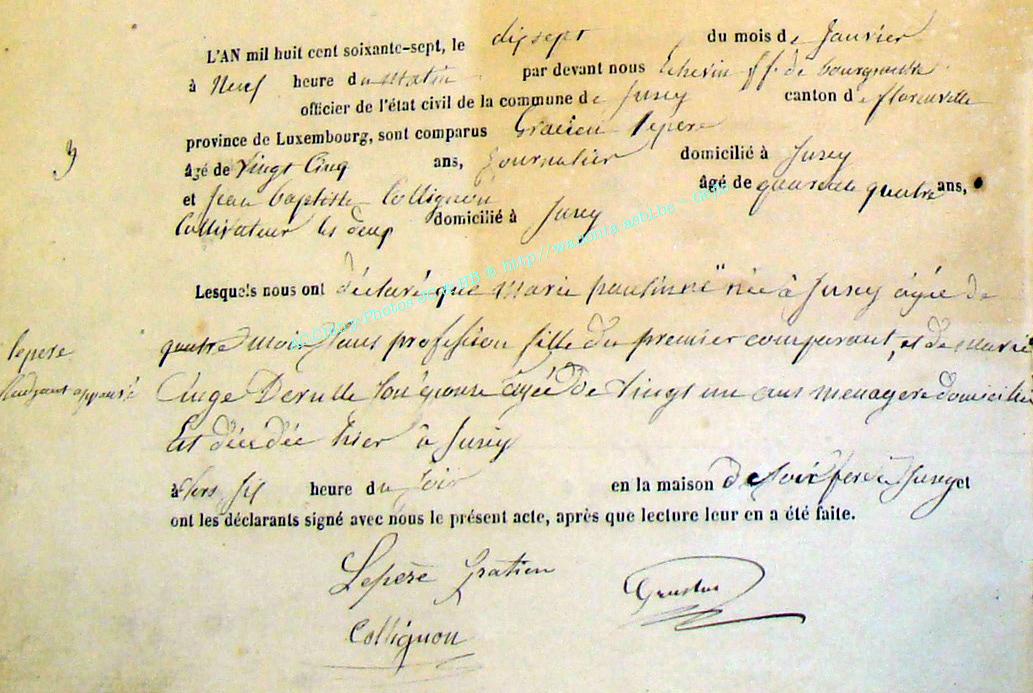 L'AN mil huit cent soixante-sept, le dixsept du mois de Janvier
à Neuf heure du matin par devant nous Echevin ff. de bourgmestre
officier de l'état civil de la commune de Jusey canton de florenville
province de Luxembourg, sont comparus Gracien Lepere
3
âgé de Vingt Cinq ans, Journalier domicilié à Jusey
et Jean baptiste Collignon âgé de quarante quatre ans,
Cultivateur les deux domicilié à Jusey
Lesquels nous ont déclaré que Marie paulinne née à Jusey agée de
Lepere
quatre mois sans profession fille du premier comparant, et de Marie
Derulle son epouse agée de Vingt un ans menagere domicilié
Est décédée hier à Jusey
à six heure du soir en la maison de son pere à Jusey et
ont les déclarants signé avec nous le présent acte, après que lecture leur en a été faite.
Lepère Gratien
Collignon